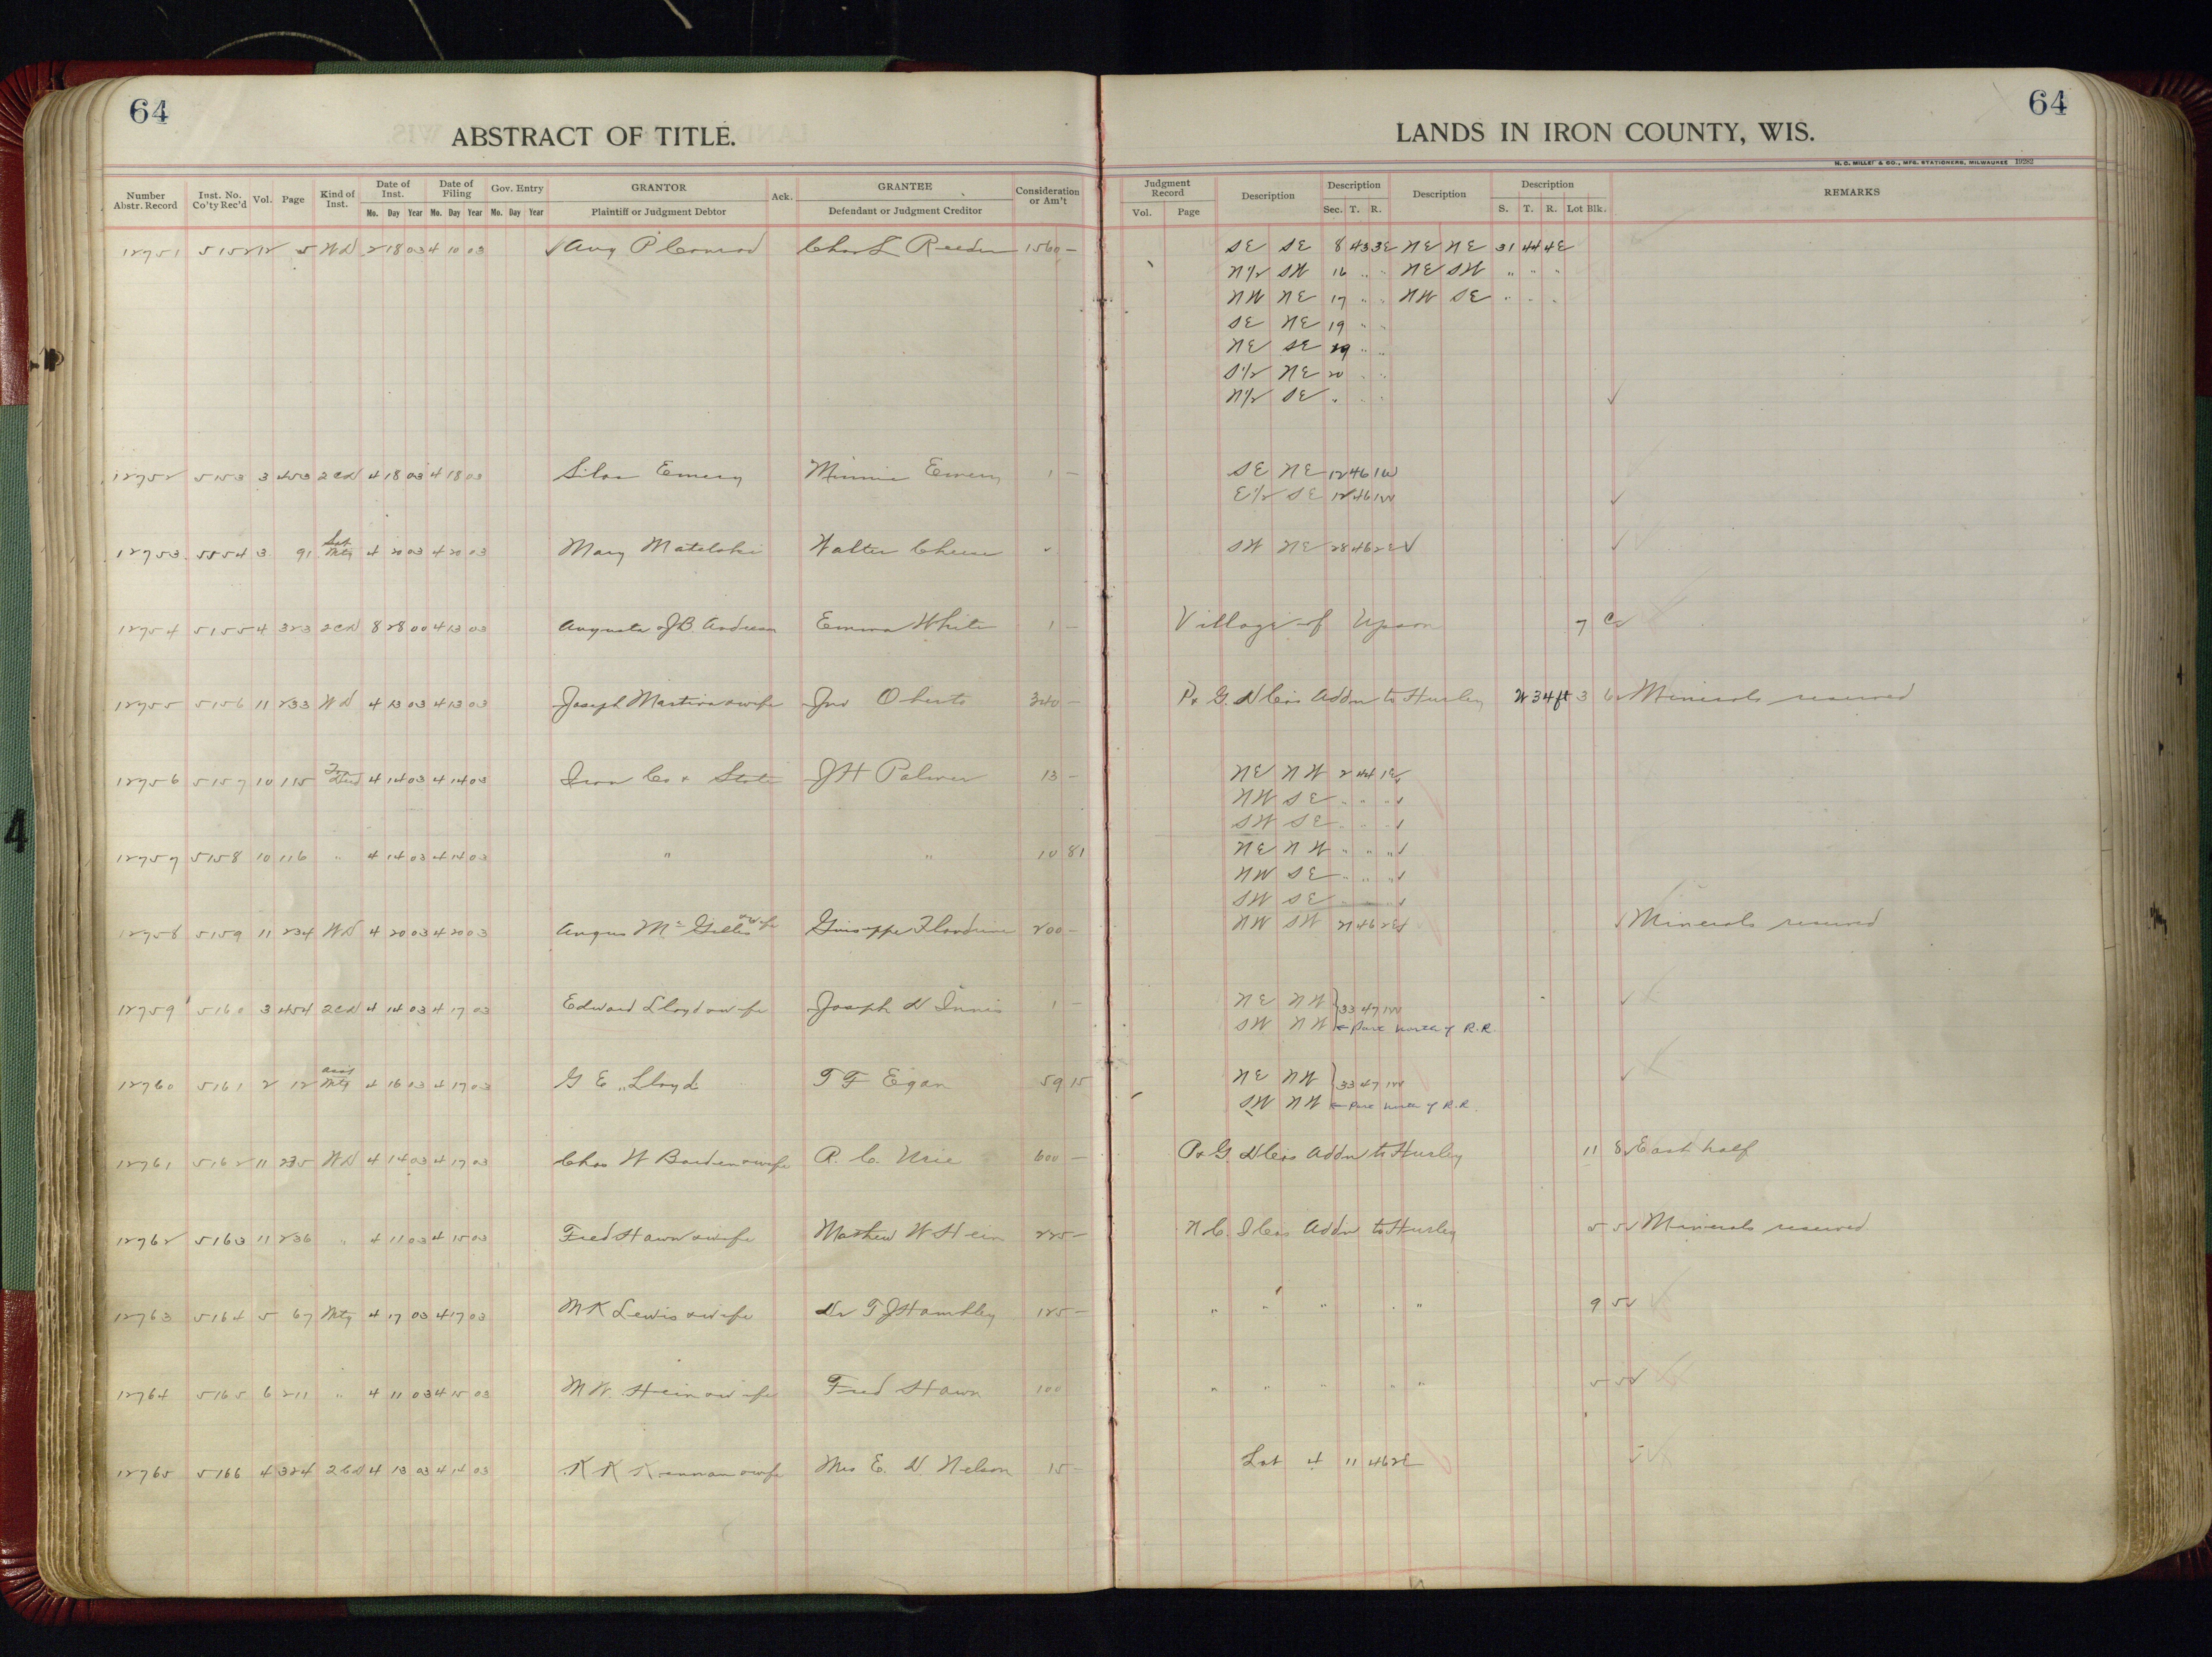 64
ABSTRACT OF TITLE.
Number Abstr. Record Inst. No. Co'ty Rec'd Vol. Page Kind of Inst. Date of Inst. Date of Filing Gov. Entry GRANTOR Ack. GRANTEE Consideration or Am't
Mo. Day Year Mo. Day Year Mo. Day Year Plaintiff or Judgment Debtor Defendant or Judgment Creditor
12751 5152 12 5 WD 2 18 03 4 10 03 Aug P Conrad Chas L Reeder 1560 —
12752 5153 3 453 2CD 4 18 03 4 18 03 Silas Emery Minnie Emery 1 —
12753 5554 3 91 Sat Mtg 4 20 03 4 20 03 Mary Mateloki Walter Cheese "
12754 5155 4 323 2CD 8 28 00 4 13 03 Augusta & J B Andrean Emma White 1 —
12755 5156 11 233 WD 4 13 03 4 13 03 Joseph Martin & wife Jno Oberto 340 —
12756 5157 10 115 Tax Deed 4 14 03 4 14 03 Iron Co & State J H Palmer 13 —
12757 5158 10 116 " 4 14 03 4 14 03 " " 10 81
12758 5159 11 234 WD 4 20 03 4 20 03 Angus Mc Gillis & wife Guiseppe 200 —
12759 5160 3 454 2CD 4 14 03 4 17 03 Edward Lloyd & wife Joseph D Innis 1 —
12760 5161 2 12 Assg Mtg 4 16 13 4 17 03 G E Lloyd T F Egan 59 15
12761 5162 11 235 WD 4 14 03 4 17 03 Chas W Borden & wife R. C. Urie 600 —
12762 5163 11 236 " 4 11 03 4 15 03 Fred Hawn & wife Mathew W Hein 225 —
12763 5164 5 67 Mtg 4 17 03 4 17 03 M K Lewis & wife Dr T J Hambley 125 —
12764 5165 6 211 " 4 11 03 4 15 03 M W. Hein & wife Fred Hawn 100
12765 5166 4 324 2CD 4 13 03 4 14 03 K K Kennan & wife Mrs E. D. Nelson 15 —
64
LANDS IN IRON COUNTY, WIS.
H. C. MILLER & CO., MFG. STATIONERS, MILWAUKEE 19282
Judgment Record Description Description Description Description REMARKS
Vol. Page Sec. T. R. S. T. R. Lot Blk.
SE SE 8 43 3E NE NE 31 44 4E
N1/2 SW 16 " " NE SW " " "
NW NE 17 " " NW SE " " "
SE NE 19 " "
NE SE 19 " "
S1/2 NE 20 " "
N1/2 SE " " " ✓
SE NE 12 46 1W
E1/2 SE 12 46 1W ✓
SW NE 28 46 2E ✓
Village of Upson 7 C ✓
P & G. D Co's Addn to Hurley W 34 ft 3 6 ✓ Minerals reserved
NE NW 2 44 1E ✓
NW SE " " " ✓
SW SE " " " ✓
NE NW " " " ✓
NW SE " " " ✓
SW SE " " " ✓
NW SW 21 46 2E ✓ Minerals reserved
NE NW } 33 47 1W ✓
SW NW ← Part North of R.R.
NE NW } 33 47 1W ✓
SW NW ← Part North of R.R.
P & G D Co's Addn to Hurley 11 8 ✓ East half
N. C. I Co's Addn to Hurley 5 5 ✓ Minerals reserved
" " " " " 9 5 ✓
" " " " " 5 5 ✓
Lot 4 11 46 2E ✓